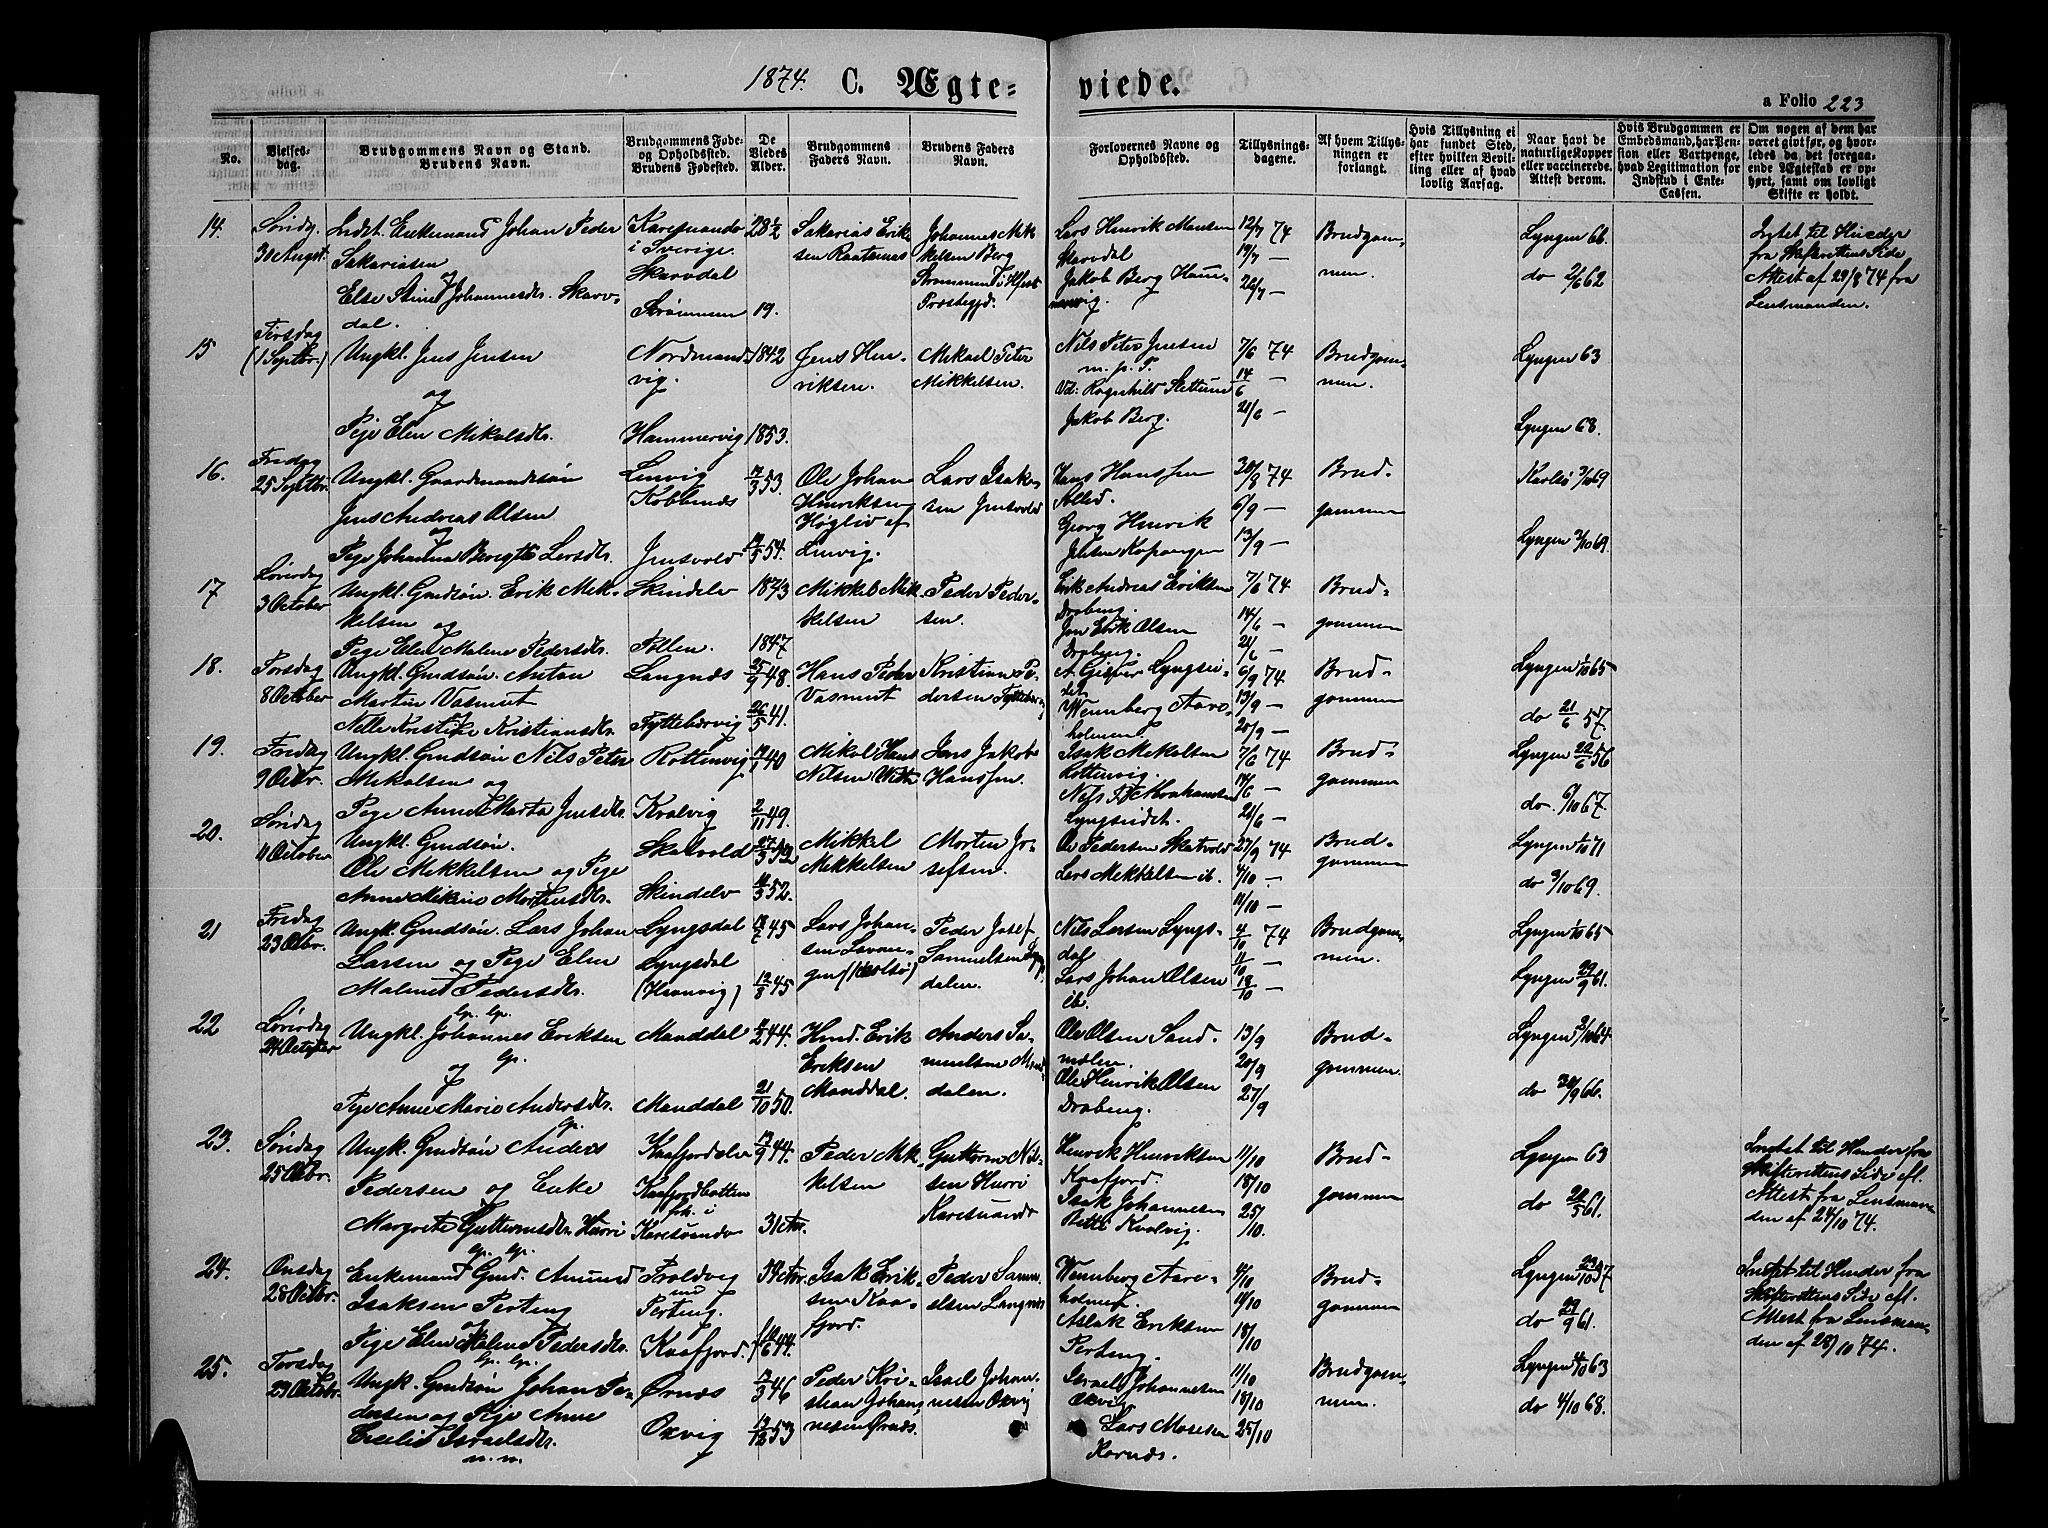 1874. C. Ægte-
viede.
a Folio 223
No.
Vielses-
dag.
Brudgommens Navn og Stand.
Brudens Navn.
Brudgommens Føde-
og Opholdssted.
Brudens Fødested.
De
Viedes
Alder.
Brudgommens
Faders Navn.
Brudens Faders
Navn.
Forlovernes Navne og
Opholdssted.
Tillysnings-
dagene.
Af hvem Tillys-
ningen er
forlangt.
Hvis Tillysning ei
har fundet Sted,
efter hvilken Bevil-
ling eller af hvad
lovlig Aarsag.
Naar havt de
naturlige Kopper
eller vaccinerede.
Attest derom.
Hvis Brudgommen er
Embedsmand, har Pen-
sion eller Vartpenge,
hvad Legitimation for
Indskud i Enke-
Cassen.
Om nogen af dem har
været givt før, og hvor-
ledes da det foregaa-
ende Ægteskab er op-
hørt, samt om lovligt
Skifte er holdt.
14.
Søndag.
30 August.
Indst. Enkemand Johan Peder
Sakariasen
og
Else Stine Johannesdr. Skarv-
dal.
Karesuando
i Sverige.
Skarvdal
Strømmen
28 1/2
19.
Sakarias Erik-
sen Raatamas
Johannes Mik-
kelsen Berg
Strømmen i
Præstegjd.
Lars Henrik Monsen
Skarvdal
Jakob Berg Ham-
mervig.
12/7 74
19/7 —
26/7 —
Brudgom-
men.
Lyngen 66.
do 2/6 62
Intet til Hinder
fra Skifterettens Side
Attest af 29/8 74 fra
Lensmanden.
15
Tirsdag
(1 Septbr.)
Ungkl. Jens Jensen
og
Pige Elen Mikalsdr.
Nordmands-
vig.
Hammervig
1842
1853.
Jens Hen-
riksen.
Mikael Peter
Mikkelsen.
Nils Peter Jensen
m. p. P.
Vd: Ragnhild Slettund
Jakob Berg.
7/6 74
14/6 —
21/6 —
Brudgom-
men.
Lyngen 63
Lyngen 68.
16.
Fredag
25 Septbr.
Ungkl. Gaardmandssøn
Jens Andreas Olsen
og
Pige Johanna Beregitte Larsdr.
Lenvig
Kobbenæs
Jensvold
7/3 53.
54.
Ole Johan
Henriksen
Høgliv af
Lenvig.
Lars Isak-
sen Jensvold
Hans Hanssen
Georg Henrik
Jensen Kopangen
30/8 74
6/9 —
13/9 —
Brud-
gommen
Karlsø 3/10 69
Lyngen 3/10 69.
17
Løverdag
3 October
Ungkl. Gmdsøn. Erik Mik-
kelsen og
Pige Elen Malene Pedersdr.
Skindelv
Pollen.
1843
1847
Mikkel Mik-
kelsen
Peder Peder-
sen.
Erik Andreas Eriksen
Drabeng.
Jon Erik Olsen
Drabeng.
7/6 74
14/6 —
21/6 —
Brud-
gommen
18.
Torsdag
8 October
Ungkl. Gmdsøn. Anton
Martin Vasmut
og
Nelle Kristine Kristiansdr.
Langnæs
Fyttebærvig
25/9 48.
26/5 41.
Hans Peder
Vasmut
Kristian Pe-
dersen
A. Gjæver Lyngsei-
det
Wennberg Aarø-
holmen.
6/9 74
13/9 —
20/9 —
Brud-
gommen
Lyngen 1/10 65
do 21/6 57.
19.
Fredag
9 Octbr.
Ungkl. Gmdsøn Nils Peter
Mikalsen og
Pige Anne Marta Jensdr.
Rottenvig
Kvalvig
40
2/11 49.
Mikal Hans
Nilsen
Jens Jakob
Hanssen.
Isak Mikalsen
Rottenvig.
Nils Abrahamsen
Lyngseidet.
7/6 74
14/6 —
21/6 —
Brud-
gommen
Lyngen 22/6 56
do. 6/10 67.
20.
Søndag
11 October
Ungkl. Gmdsøn.
Ole Mikkelsen og Pige
Anne Mikine Mortensdr.
Skatvold
Skindelv
52.
Mikkel
Mikkelsen
Morten Jo-
sefsen.
Ole Pedersen Skatvold
Lars Mikkelsen ib.
27/9 74
4/10 —
11/10 —
Brud-
gommen
Lyngen 1/10 71
do 3/10 69.
21
Fredag
23 Octbr.
Ungk. Gmdsøn. Lars Johan
Larsen og Pige Elen
Malene Pedersdr.
Lyngsdal
Lyngsdal
45
12/8 45
Lars Johan-
sen Lavan-
gen (Karlsø)
Peder Josef
Samuelsen Lyngs-
dalen.
Nils Larsen Lyngs-
dal
Lars Johan Olsen
ib.
4/10 74
11/10 —
18/10 —
Brudgom-
men.
Lyngen 1/10 65
Lyngen 29/9 61.
22
Løverdag
24 October
lp. lp.
Ungkl. Johannes Eriksen
lp.
og
Pige Anne Marie Andersdr.
lp.
Manddal
Manddal
44.
21/10 50.
Hmd. Erik
Eriksen
Manddal.
Anders Sa-
muelsen Mand-
dalen.
Ole Olsen Sand-
mælen.
Ole Henrik Olsen
Drabeng.
13/9
20/9
27/9
Brud-
gommen.
Lyngen 3/10 64
do 30/9 66.
23.
Søndag
25 Octbr.
Ungk. Gmdsøn Anders
Pedersen og Enke
Margrete Guttormsdr. Hurri
lp. lp.
Kaafjorddalen
Kaafjordbotten
fh. i
Karesuando
13/9 44.
Peder Mik-
kelsen
Guttorm Nil-
sen Hurri
Karesuando
Henrik Henriksen
Kaafjord.
Isak Johannesen
Kvalvig.
11/10
18/10
25/10.
Brud-
gommen
Lyngen 63
do 61.
Intet til Hinder fra
Skifterettens Side efl.
Attest fra Lensman-
den af 24/10 74.
24.
Onsdag
28 Octbr.
Enkemand Gmd. Amund
Isaksen Perteng
og
Pige Elen Malene Pedersdr.
lp. lp.
Troldvig
nu
Perteng.
Kaafjord.
44.
Isak Erik-
sen Kaa-
fjord.
Peder Samu-
elsen Langnæs
Wennberg Aarø-
holmen.
Aslak Eriksen
Perteng.
4/10
11/10
18/10
Brud-
gommen
Lyngen 57
do 29/9 61.
Intet til Hinder fra
Skifterettens Side efl.
Attest fra Lensman-
den af 28/10 74.
25.
Torsdag
29 Octobr.
Ungk. Gmdsøn Johan Pe-
dersen og Pige Anne
Cecilie Israelsdr.
n. n.
Ørnæs
Oxvig
46
53
Peder Kri-
stian Johan-
nesen Ørnæs.
Israel Johan-
nesen Oxvig
Israel Johannesen
Oxvig
Lars Mosesen
Kornæs.
11/10
18/10
25/10
Brudgom-
men.
Lyngen 63
do 4/10 68.